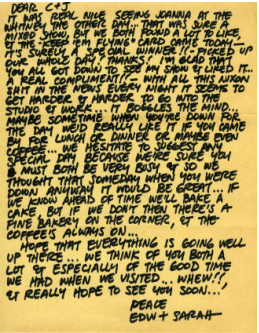 DEAR C+J
IT WAS REAL NICE SEEING JOANNA AT THE
WHITNEY THE OTHER DAY.. THAT WAS SURE A
MIXED SHOW, BUT WE BOTH FOUND A LOT TO LIKE
& THE "KEEP 'EM FLYING" CARD CAME TODAY..
IT'S SURELY A SPECIAL WINNER!! - PICKED UP
OUR WHOLE DAY! THANKS! I'M GLAD THAT
YOU ALL GOT DOWN TO SEE MY SHOW & LIKED IT..
A REAL COMPLIMENT!! WITH ALL THIS NIXON
SHIT IN THE NEWS EVERY NIGHT IT SEEMS TO
GET HARDER & HARDER TO GO INTO THE
STUDIO & WORK... IT BOGGLES THE MIND...
MAYBE SOMETIME WHEN YOU'RE DOWN FOR
THE DAY WE'D REALLY LIKE IT IF YOU CAME
BY FOR LUNCH OR DINNER OR MAYBE EVEN
COFFEE... WE HESITATE TO SUGGEST ANY
SPECIAL DAY BECAUSE WE'RE SURE YOU
MUST BOTH BE VERY BUSY & SO WE
THOUGHT THAT SOMEDAY WHEN YOU WERE
DOWN ANYWAY IT WOULD BE GREAT... IF
WE KNOW AHEAD OF TIME WE'LL BAKE A
CAKE, BUT IF WE DON'T THEN THERE'S A
FINE BAKERY ON THE CORNER, & THE
COFFEE'S ALWAYS ON...
HOPE THAT EVERYTHING IS GOING WELL
UP THERE... WE THINK OF YOU BOTH A
LOT & ESPECIALLY OF THE GOOD TIME
WE HAD WHEN WE VISITED.. WHEW!!,
& REALLY HOPE TO SEE YOU SOON...!
PEACE
EDW + SARAH